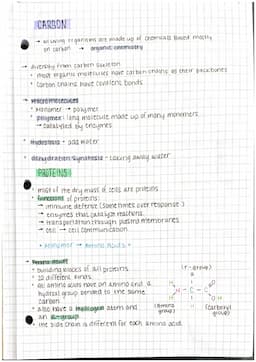 CARBON
→ all living organisms are made up of chemicals based mostly
on carbon → organic chemistry
→ diversity from carbon skeleton
• most organic molecules have carbon chains as their backbones
• carbon chains have covalent bonds
→ Macromolecules
• Monomer → polymer
• polymer: long molecule made up of many monomers
→ catalyzed by enzymes
• Hydrolysis - add water
• dehydration synthesis - taking away water
PROTEINS
• most of the dry mass of cells are proteins
• functions of proteins:
→ immune defense (sometimes over response)
→ enzymes that catalyze reactions
→ transportation through plasma membranes
→ cell - cell communication
• Monomer → Amino Acids •
→ Amino Acids
• building blocks of all proteins
• 20 different kinds
• all amino acids have an amino and a
hydroxyl group bonded to the same
carbon
• also have a hydrogen atom and
an R group
• the side chain is different for each amino acid
(R-group)
R
H
N - C - C
H
H
O
OH
(amino
group)
(carboxyl
group)